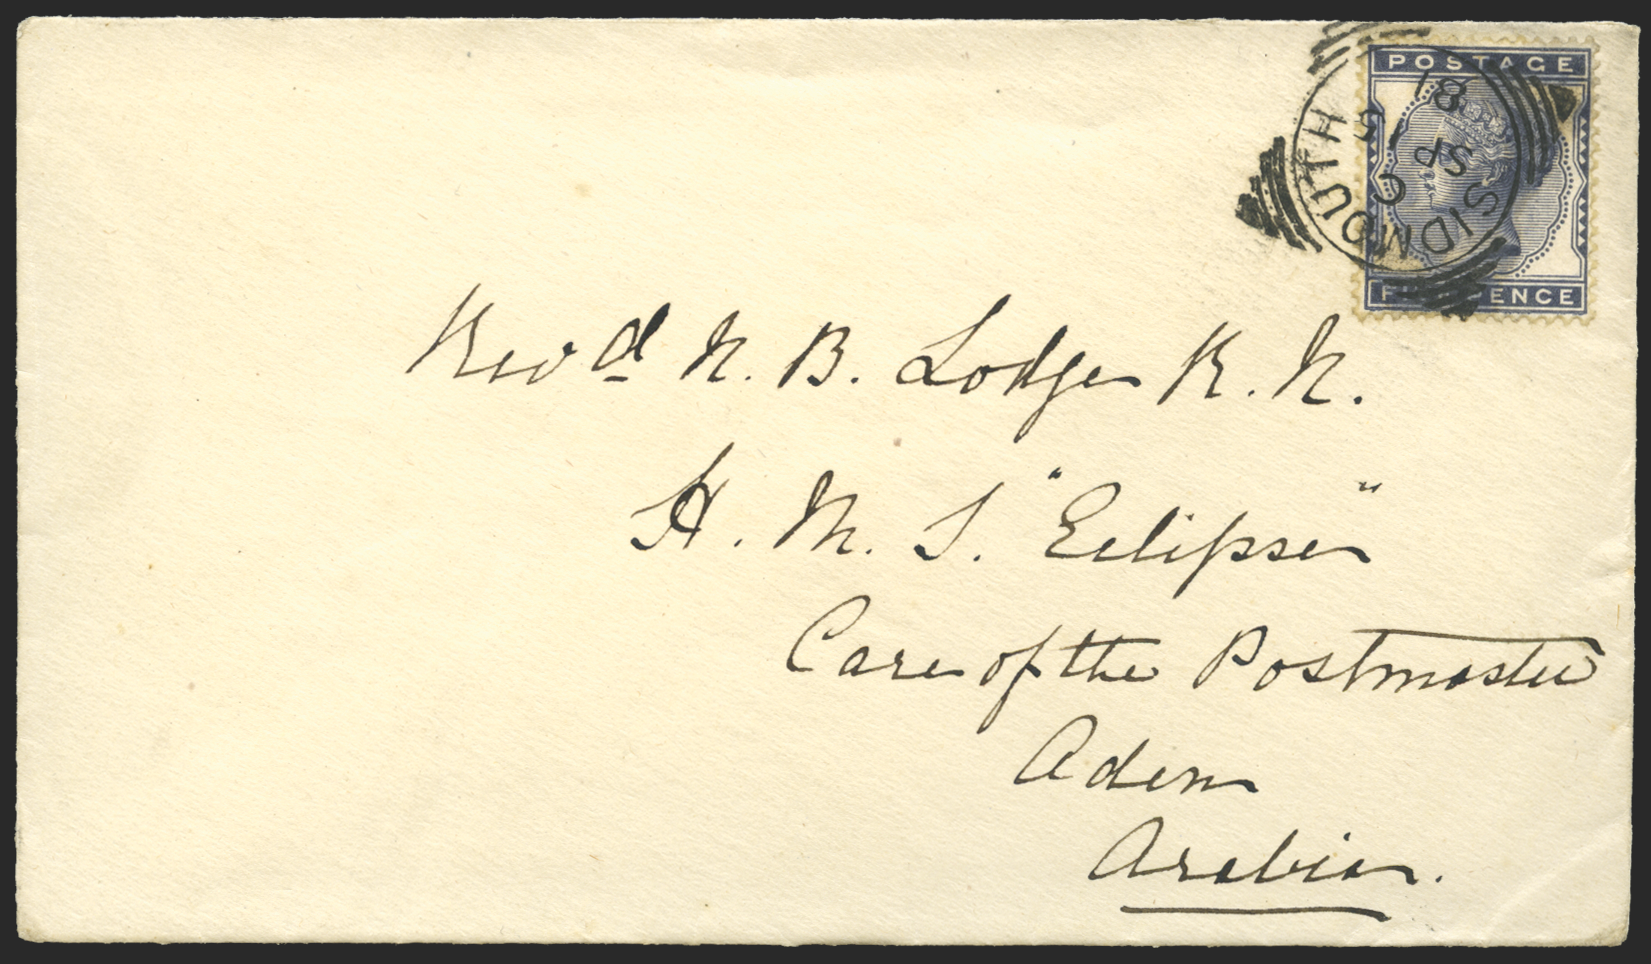 POSTAGE
FIVE PENCE
SIDMOUTH
C
SP 15
81
Revd N. B. Lodge R. N.
H. M. S. "Eclipse"
Care of the Postmaster
Aden
Arabia.